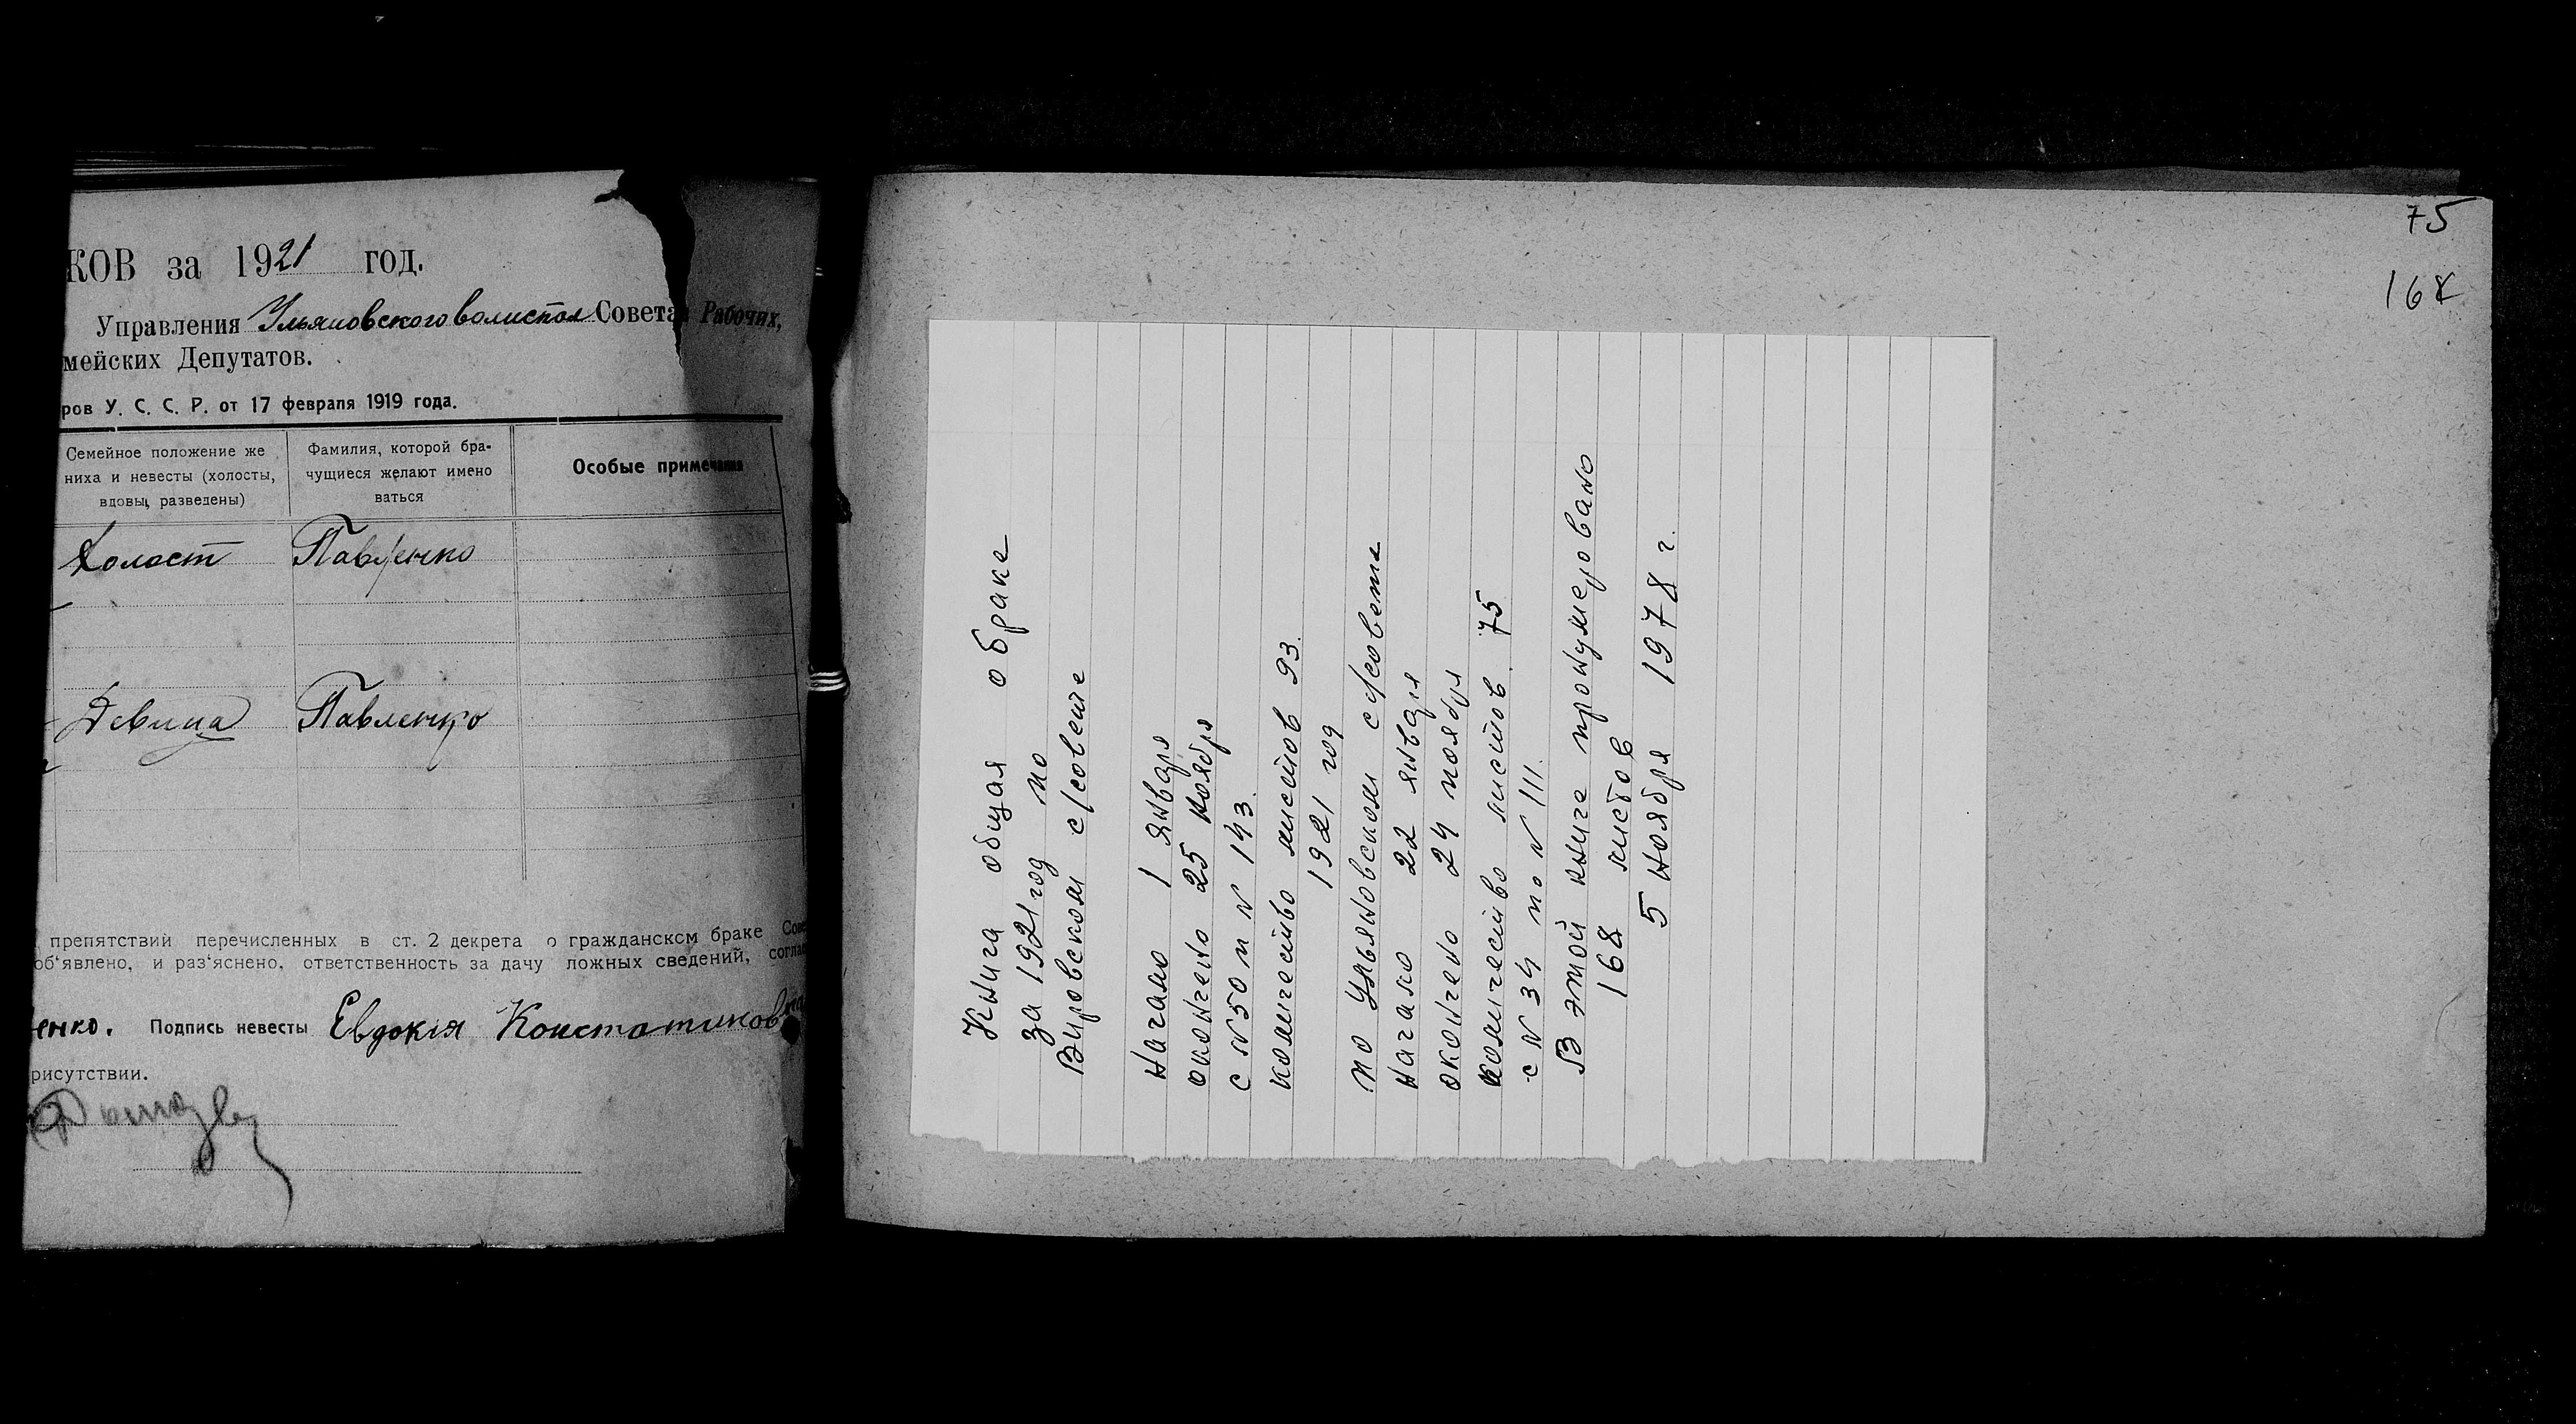 КОВ за 1921 год.
Управления Ульяновского волиспол Совета Рабочих,
мейских Депутатов.
ров У. С. С. Р. от 17 февраля 1919 года.
Семейное положение же
ниха и невесты (холосты,
вдовы, разведены)
Фамилия, которой бра-
чущиеся желают имено
ваться
Особые примечания
Холост Павленко
Девица Павленко
препятствий перечисленных в ст. 2 декрета о гражданском браке Сове
об'явлено, и раз'яснено, ответственность за дачу ложных сведений, согла
енко. Подпись невесты Евдокія Констатиновна
рисутствии.
75
168
Книга общая о браке
за 1921 год по
Вировском с/совете
Начало 1 января
окончено 25 ноября
с №50 п № 143.
количество листов 93.
1921 год
по Ульяновском с/совета
Начало 22 января
окончено 24 ноября
количество листов 75
с № 34 по № 111.
В этой книге пронумеровано
168 листов
5 ноября 1978 г.